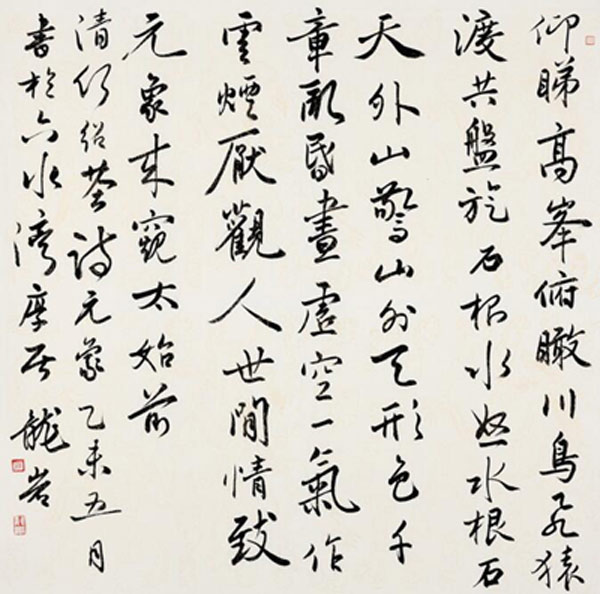 仰睇高峯俯瞰川鳥飛猿
渡共盤旋石根水怒水根石
天外山驚山外天形色千
章昏晝虛空一氣作
雲煙厭觀人世間情致
元象來窺太始前
清何紹基诗元象乙未五月
書於六水灣摩居龍岩